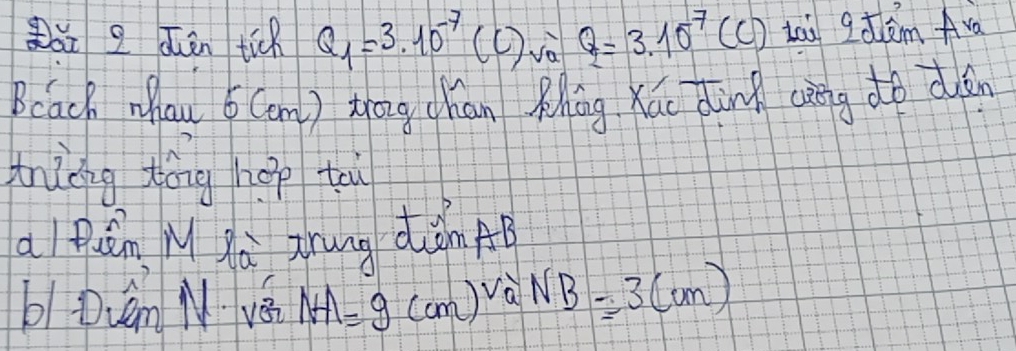 Đặt 2 điện tích Q₁=3.10⁻⁷ (C) và Q₂= 3.10⁻⁷ (C) tại 2 điểm A và
B cách nhau 6 (cm) trong chân không. Xác định cường độ điện
trường tổng hợp tại
a/ Điểm M là trung điểm AB
b/ Điểm N với NA=9 (cm) và NB = 3 (cm)